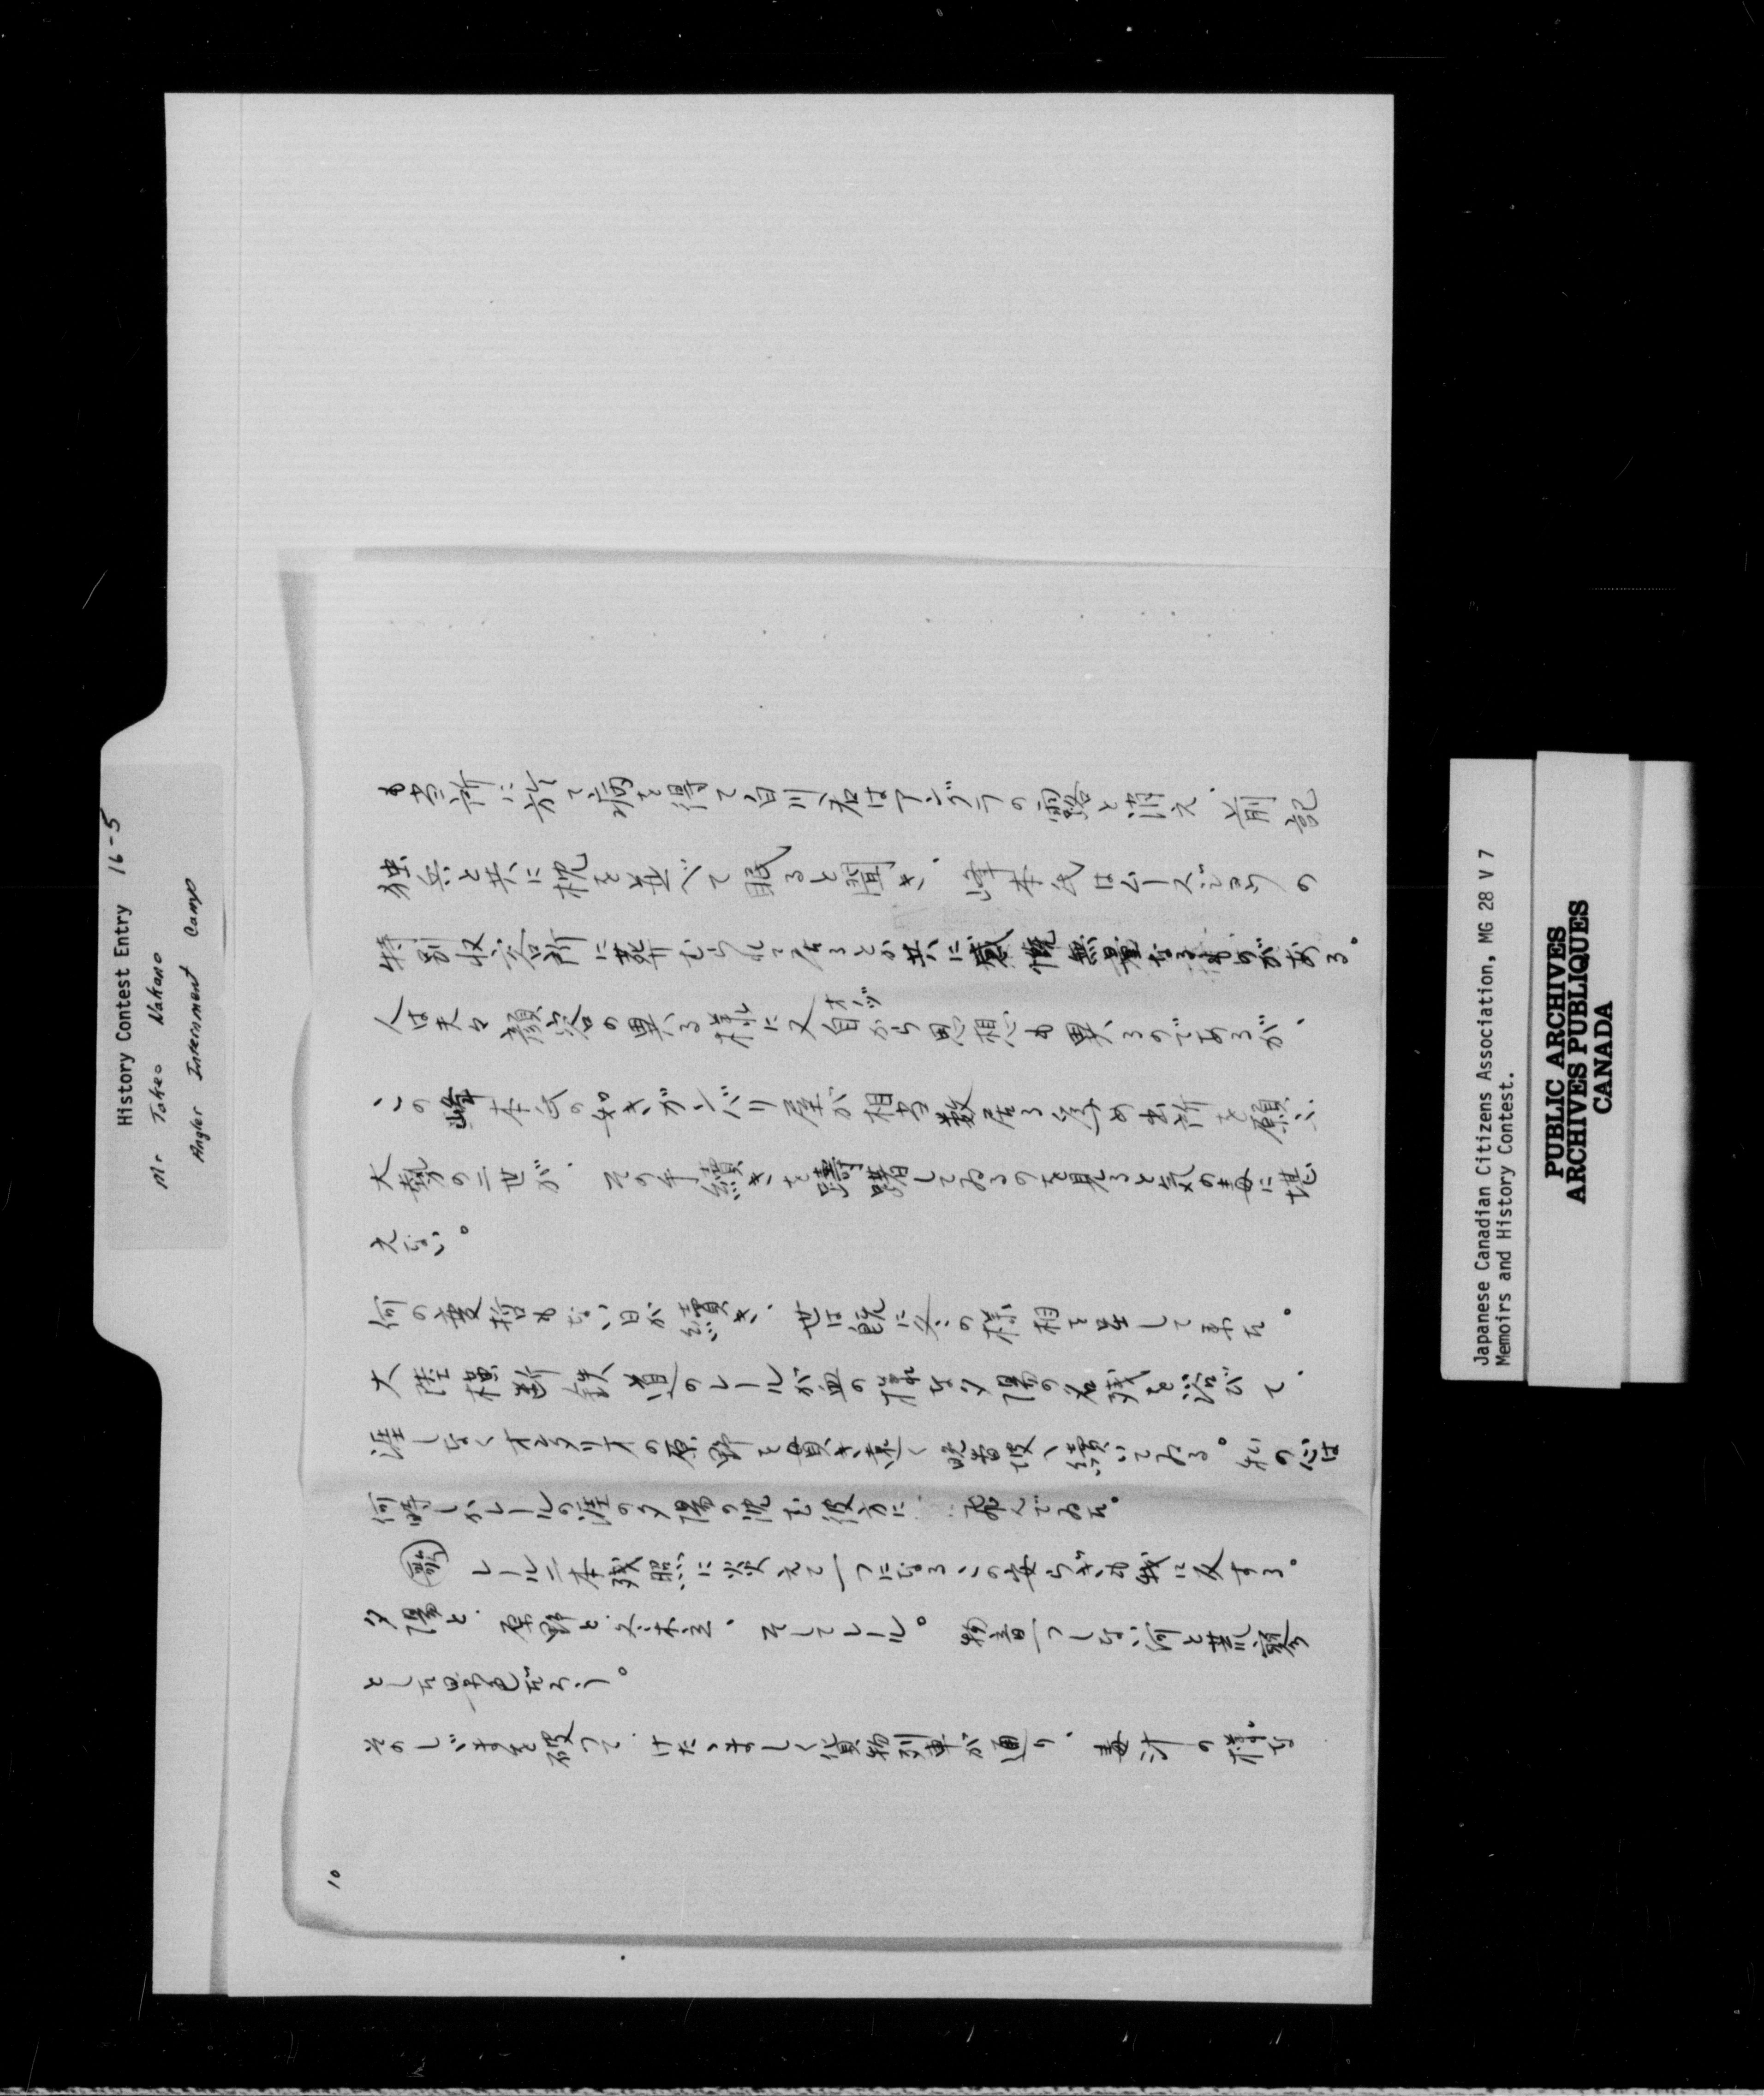 History Contest Entry 16-5
Mr Takeo Nakano
Angler Internment Camp
も当所に於て病を得て白川君はアングラの露と消え、前記
独兵と共に枕を並べて眠ると聞き、峰本氏はムースジョウの
特別収容所に葬むられて居るとか共に感慨無量なるものがある。
人は夫々顔容の異る様に又自から思想も異るのであるが、
オノヅ
この峰本氏の如きガンバリ屋が相当数居る為め出所を願ふ
大勢の二世が、その手續きを躊躇してゐるのを見ると気の毒に堪
えない。
何の変哲もない日が續き、世は既に冬の様相を呈して来た。
大陸横断鉄道のレールが血の様な夕陽の名残を浴びて、
涯しなくオンタリオの原野を貫き遠く続いてゐる。私の心は
何時しかレールの涯の夕陽の沈む彼方に 飛んでゐた。
歌 レール二本残照に映えて一つになるこの安らぎも我に反する。
夕陽と、原野と、冬木立、そしてレール。物音一つしない何と荒寥
とした景色だらう。
そのしゞまを破って、けたゝましく貨物列車が通り、毒汁の様な
10
Japanese Canadian Citizens Association, MG 28 V 7
Memoirs and History Contest.
PUBLIC ARCHIVES
ARCHIVES PUBLIQUES
CANADA